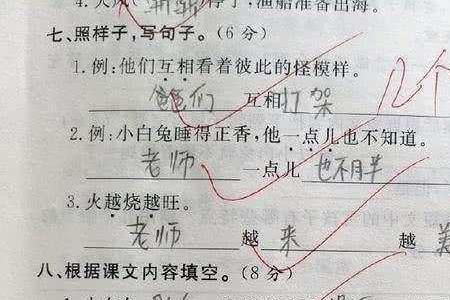 渐渐停了,渔船准备出海。
七、照样子,写句子。(6分)
1.例:他们互相看着彼此的怪模样。
爸爸们 互相打架
2.例:小白兔睡得正香,他一点儿也不知道。
老师 一点儿 也不胖
3.火越烧越旺。
老师 越 来 越 美
八、根据课文内容填空。(8分)